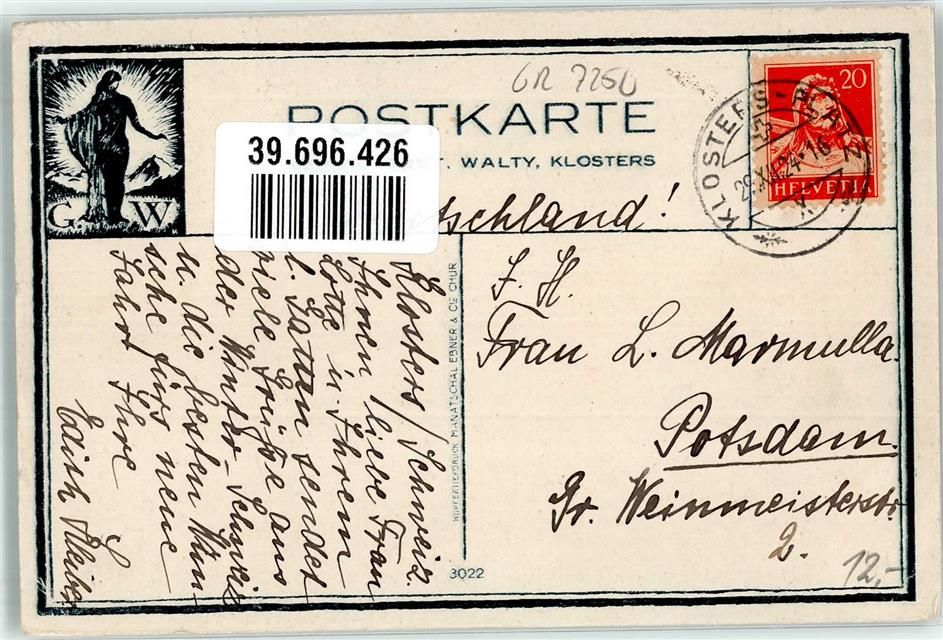 GR 7250
POSTKARTE
39.696.426
T. WALTY, KLOSTERS
G. W
20
HELVETIA
KLOSTERS-PLATZ
tschland!
F. H.
Frau L. Marmulla
Potsdam
Gr. Weinmeisterstr.
2.
12,-
3022
KUPFERTIEFDRUCK MANATSCHAL EBNER & CIE CHUR
Klosters/Schweiz.
Ihnen liebe Frau
Lotte u. Ihrem
l. Gatten sendet
viele Grüsse aus
der Winter-Schweiz
u. die besten Wün
sche fürs neue
Jahr Ihre
Edith